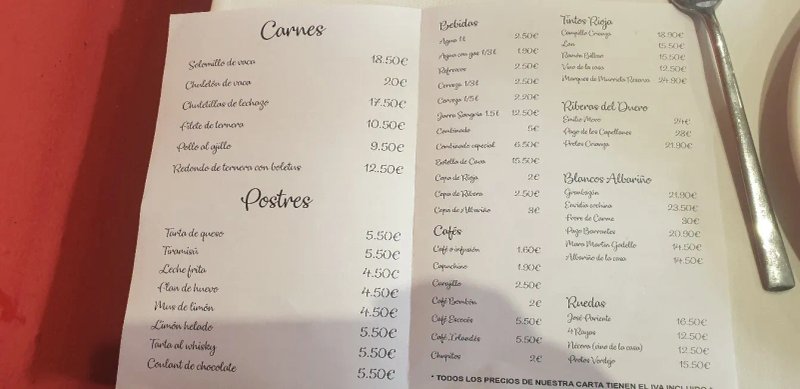 Carnes
Solomillo de vaca 18.50€
Chuletón de vaca 20€
Chuletillas de lechazo 17.50€
Filete de ternera 10.50€
Pollo al ajillo 9.50€
Redondo de ternera con boletus 12.50€
Postres
Tarta de queso 5.50€
Tiramisú 5.50€
Leche frita 4.50€
Flan de huevo 4.50€
Mus de limón 4.50€
Limón helado 5.50€
Tarta al whisky 5.50€
Coulant de chocolate 5.50€
Bebidas
Agua 1l 2.50€
Agua con gas 1/3 l 1.90€
Refrescos 2.50€
Cerveza 1/3 l 2.50€
Cerveza 1/5 l 2.20€
Jarra Sangría 1.5 l 12.50€
Combinado 5€
Combinado especial 6.50€
Botella de Cava 15.50€
Copa de Rioja 2€
Copa de Ribera 2.50€
Copa de Albariño 3€
Cafés
Café o infusión 1.60€
Capuchino 1.90€
Carajillo 2.50€
Café Bombón 2€
Café Escocés 5.50€
Café Irlandés 5.50€
Chupitos 2€
Tintos Rioja
Campillo Crianza 18.90€
Lan 15.50€
Ramón Bilbao 15.50€
Vino de la casa 12.50€
Marques de Murrieta Reserva 24.90€
Riberas del Duero
Emilio Moro 24€
Pago de los Capellanes 28€
Protos Crianza 21.90€
Blancos Albariño
Granbazán 21.90€
Envidia cochina 23.50€
Frore de Carme 30€
Pazo Barrantes 20.90€
Mara Martin Godello 14.50€
Albariño de la casa 14.50€
Ruedas
José Pariente 16.50€
4 Rayas 12.50€
Nécora (vino de la casa) 12.50€
Protos Verdejo 15.50€
* TODOS LOS PRECIOS DE NUESTRA CARTA TIENEN EL IVA INCLUIDO